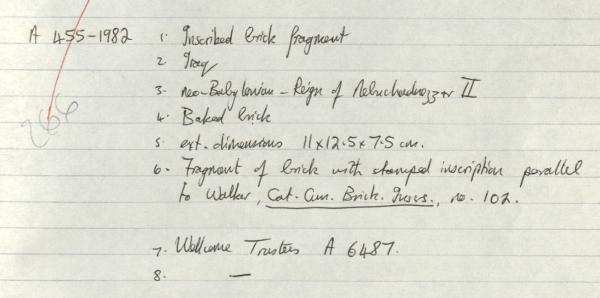 A 455-1982 1. Inscribed brick fragment
2. Iraq
3. neo-Babylonian - Reign of Nebuchadnezzar II
4. Baked brick
5. ext. dimensions 11x12.5x7.5 cm.
6. Fragment of brick with stamped inscription parallel
to Walker, Cat. Cun. Brick. Inscs., no. 102.
266
7. Wellcome Trustees A 6487.
8. —